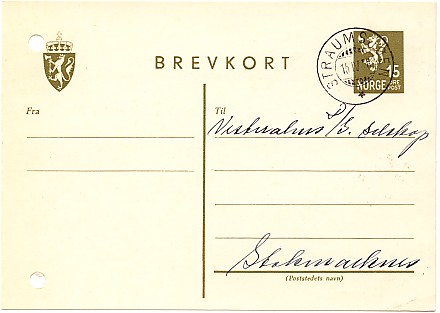 BREVKORT
STRAUMS
15
NORGE
Fra
Til
Vesteraalens D/S. Selskap
Stokmarknes
(Poststedets navn)